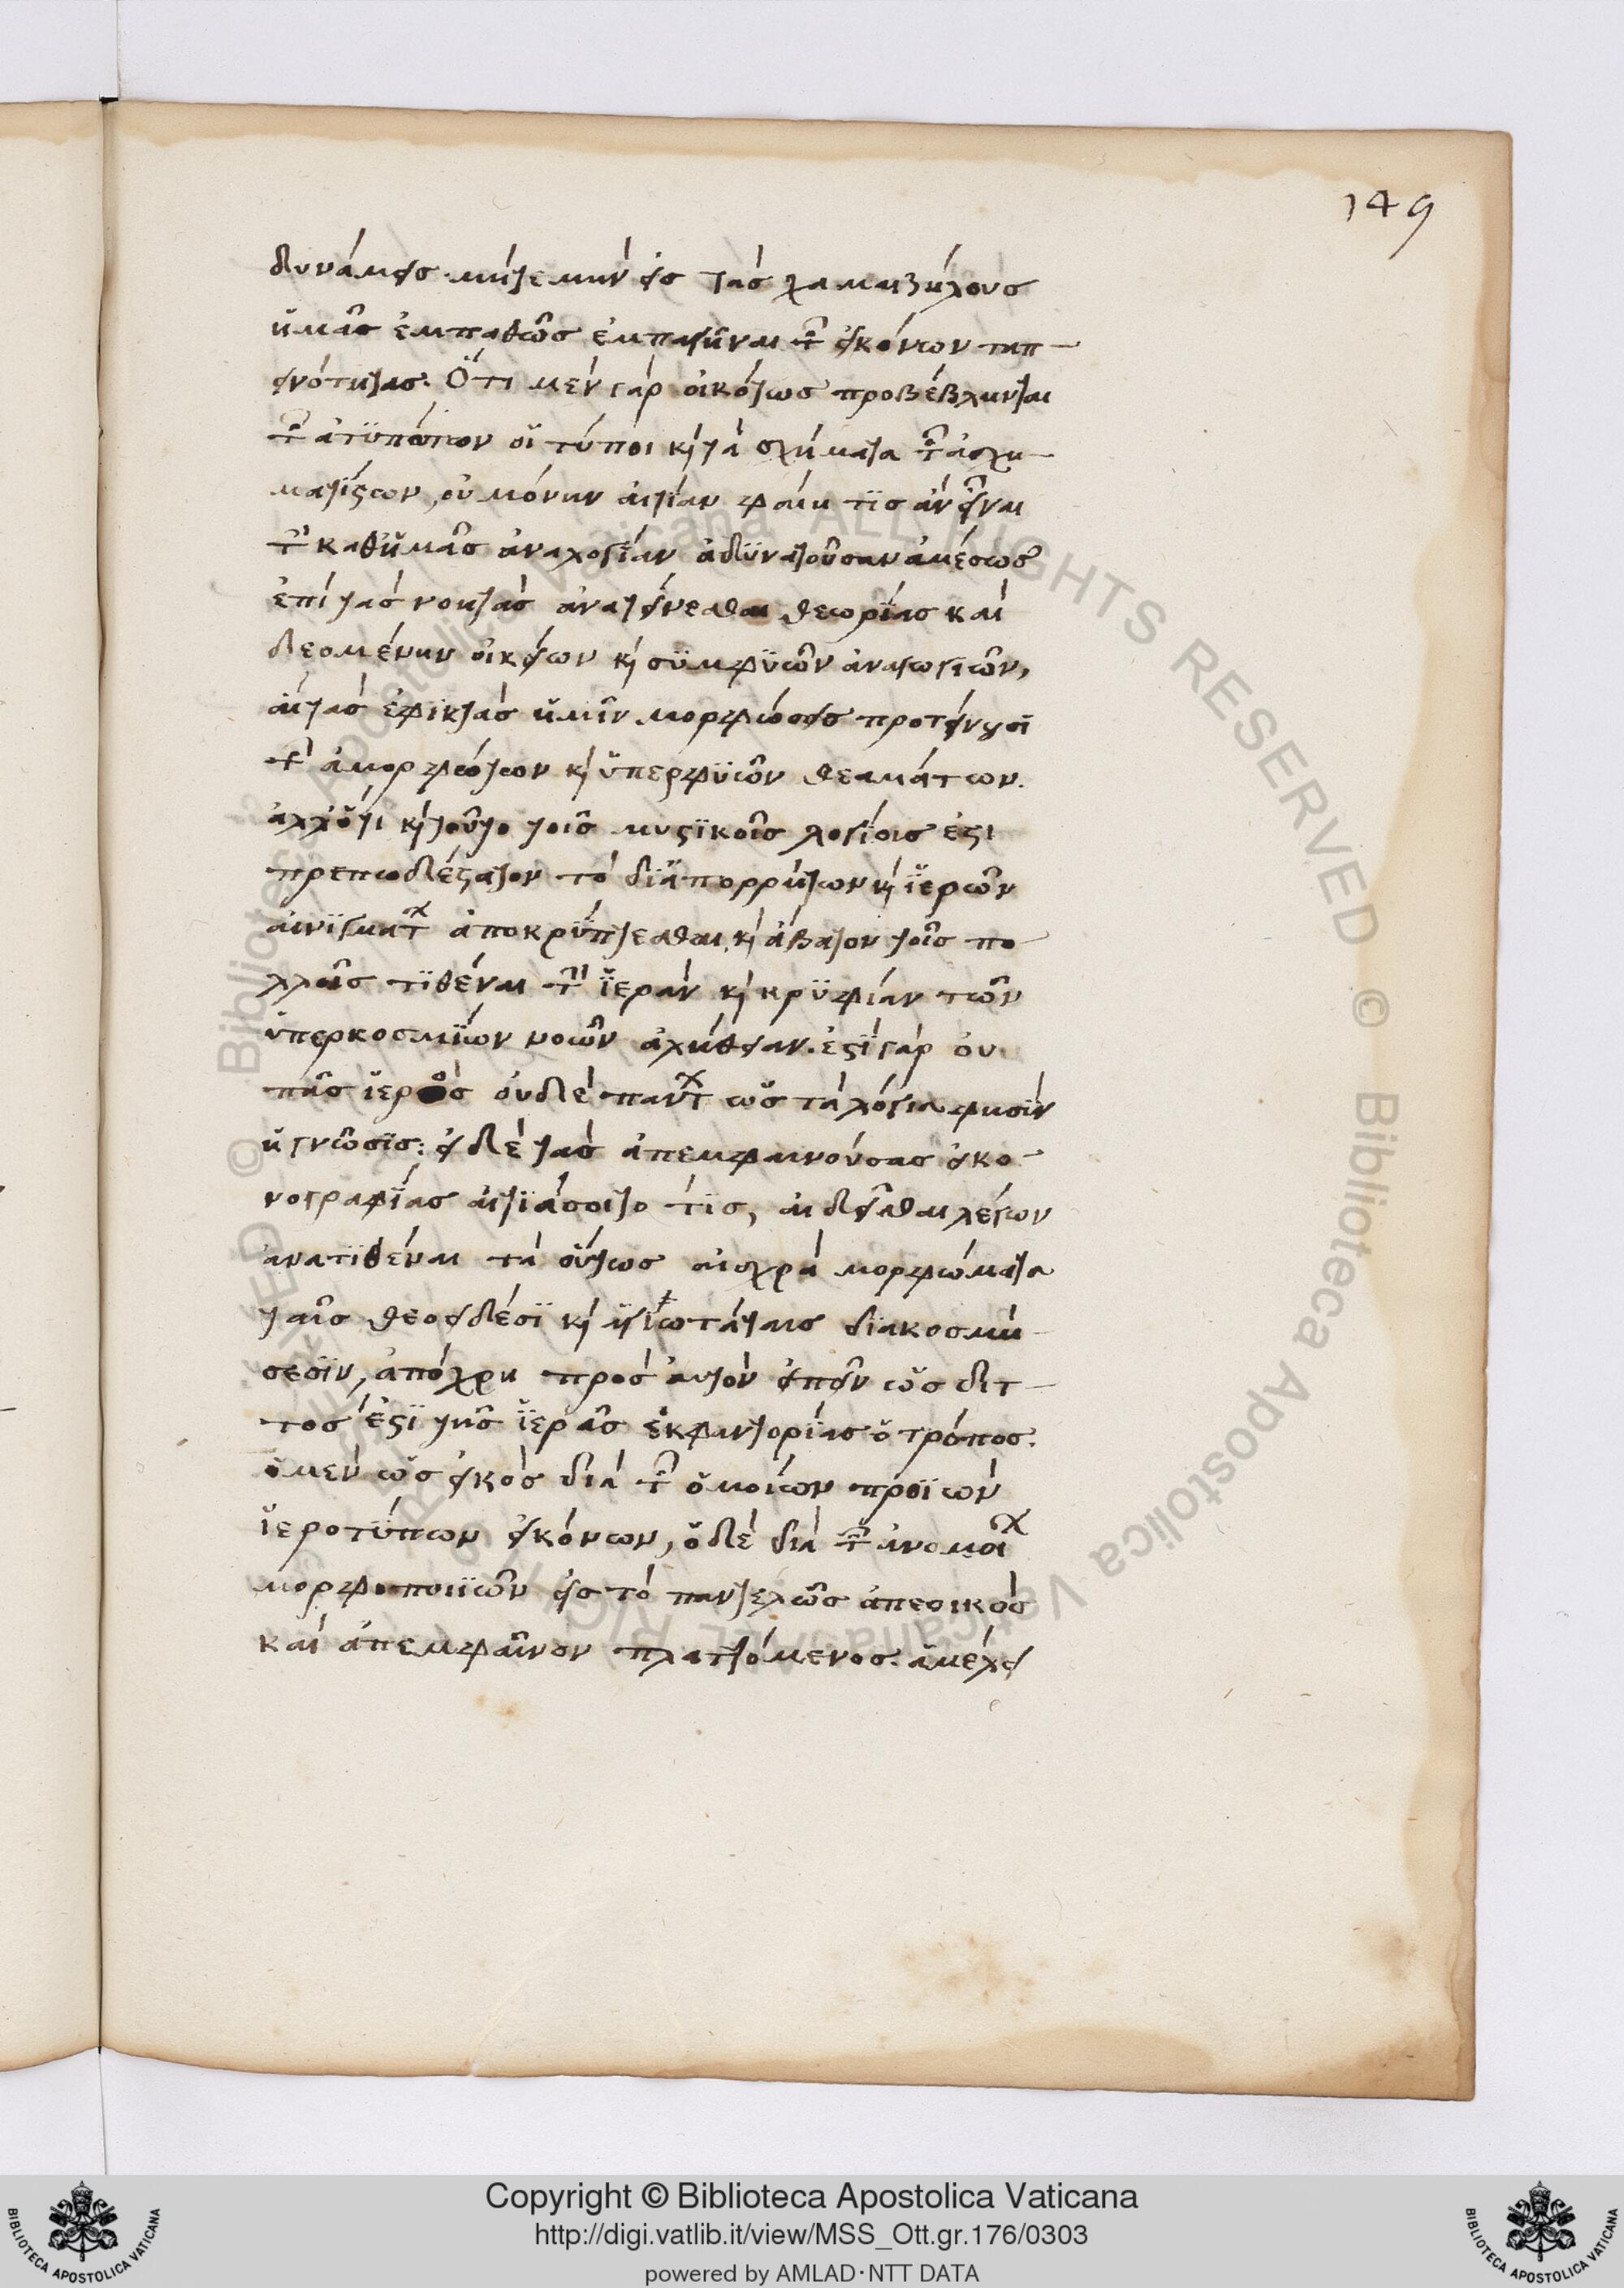 149
δυνάμεισ· μήτε μὴν εἰσ τὰσ χαμαιζήλουσ
ἡμᾶσ ἐμπαθῶσ ἐμπαγῆναι τῶν εἰκόνων ταπ-
εινότητασ. Ὅτι μὲν γὰρ οἰκότωσ προβέβληνται
τῶν ἀτϋπώτων οἱ τύποι κὶ τὰ σχήματα τῶν ἀσχη-
ματίστων, οὐ μόνην αἰτίαν φαίη τϊσ ἂν εἶναι
τὴν καθ ἡμᾶσ ἀναλογίαν ἀδϋνατοῦσαν ἀμέσωσ
ἐπὶ τὰσ νοητὰσ ἀνατείνεσθαι θεωρίασ καὶ
δεομένην οἰκείων κὶ σϋμφϋῶν ἀναγωγιῶν,
αἳ τὰσ ἐφϊκτὰσ ἡμῖν μορφώσεισ προτείνουσϊ
τῶν ἀμορφώτων κὶ ὑπερφϋῶν θεαμάτων.
ἀλλ ὅτι κὶ τοῦτο τοῖσ μυστϊκοῖσ λογίοισ ἐστι
πρεπωδέστατον τὸ δϊ ἀπορρήτων κὶ ἱερῶν
αἰνϊγμάτ ἀποκρύπτεσθαι, κὶ ἄβατον τοῖσ πο-
λλοῖσ τϊθέναι τὴν ἱερὰν κὶ κρϋφίαν τῶν
ὑπερκοσμίων νοῶν ἀλήθειαν. ἔστϊ γὰρ οὐ
πᾶσ ἱερὸσ οὐδὲ πάντ ὡσ τὰ λόγια φησὶν
ἡ γνῶσϊσ: εἰ δὲ τὰσ ἀπεμφαινούσασ εἰκο-
νογραφΐασ αἰτϊάσοιτο τὶσ, αἰδεῖσθαι λέγων
ἀνατϊθέναι τὰ οὕτωσ αἰσχρὰ μορφώματα
ταῖσ θεοειδέσϊ κὶ ἁγϊωτάταισ δϊακοσμή-
σεσϊν, ἀπόχρη πρὸσ αὐτὸν εἰπεῖν ὡσ διτ-
τὸσ ἐστϊ τῆσ ἱερᾶσ ἐκφαντορίασ ὁ τρόποσ.
ὁ μὲν ὡσ εἰκὸσ διὰ τῶν ὁμοίων προϊὼν
ἱεροτύπων εἰκόνων, ὁ δὲ διὰ τῶν ἀνομοί
μορφοποιϊῶν εἰσ τὸ παντελῶσ ἀπεοικὸσ
καὶ ἀπεμφαῖνον πλαττόμενοσ. ἀμέλει
Copyright © Biblioteca Apostolica Vaticana
http://digi.vatlib.it/view/MSS_Ott.gr.176/0303
powered by AMLAD·NTT DATA